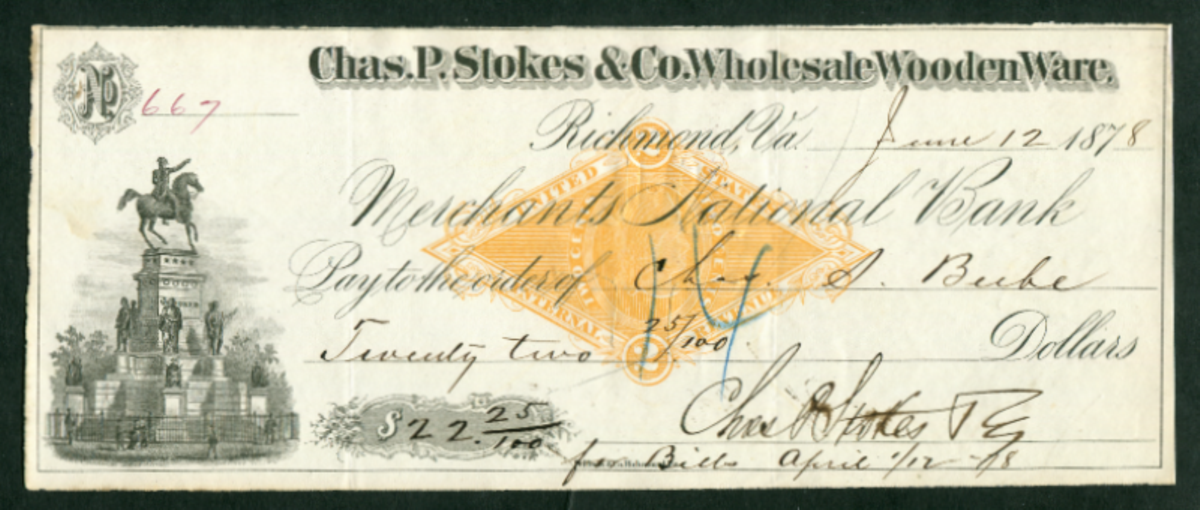 Chas. P. Stokes & Co. Wholesale Wooden Ware.
No 667
Richmond, Va. June 12 1878
Merchants National Bank
Pay to the order of Chas. S. Beebe
Twenty two 25/100 Dollars
$22.25/100
14
UNITED STATES
INTERNAL REVENUE
2
2
Chas P Stokes & Co
for Bills April 1/12 78